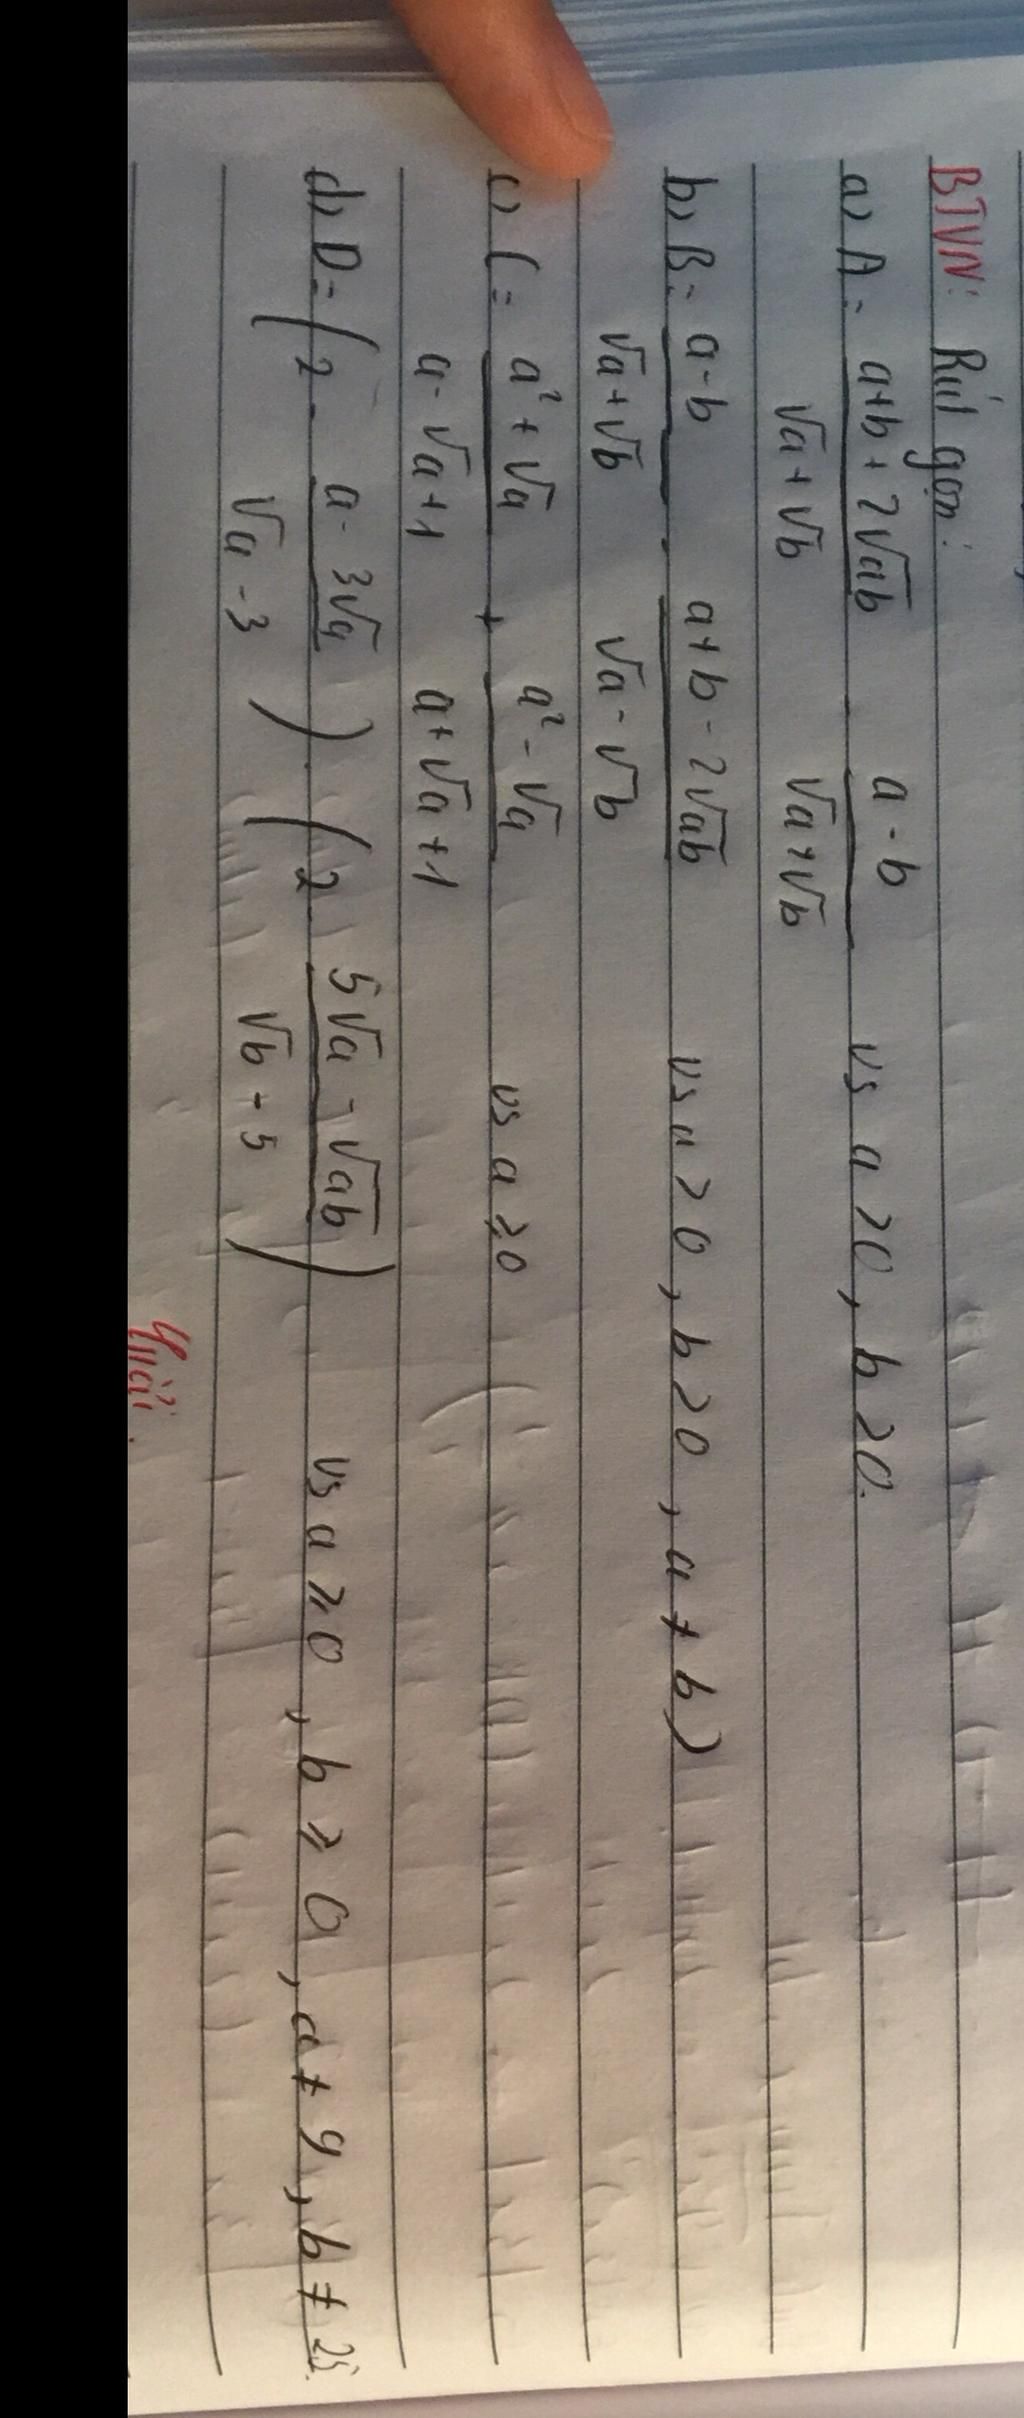 BTVN: Rút gọn:
a) A = (a+b+2√ab)/(√a+√b) - (a-b)/(√a+√b) vs a>0, b>0.
b) B = (a-b)/(√a+√b) - (a+b-2√ab)/(√a-√b) vs a>0, b>0, a≠b)
c) C = (a²+√a)/(a-√a+1) + (a²-√a)/(a+√a+1) vs a≥0
d) D = (2 - (a-3√a)/(√a-3)) . (2 - (5√a-√ab)/(√b-5)) vs a≥0, b≥0, a≠9, b≠25.
Giải.